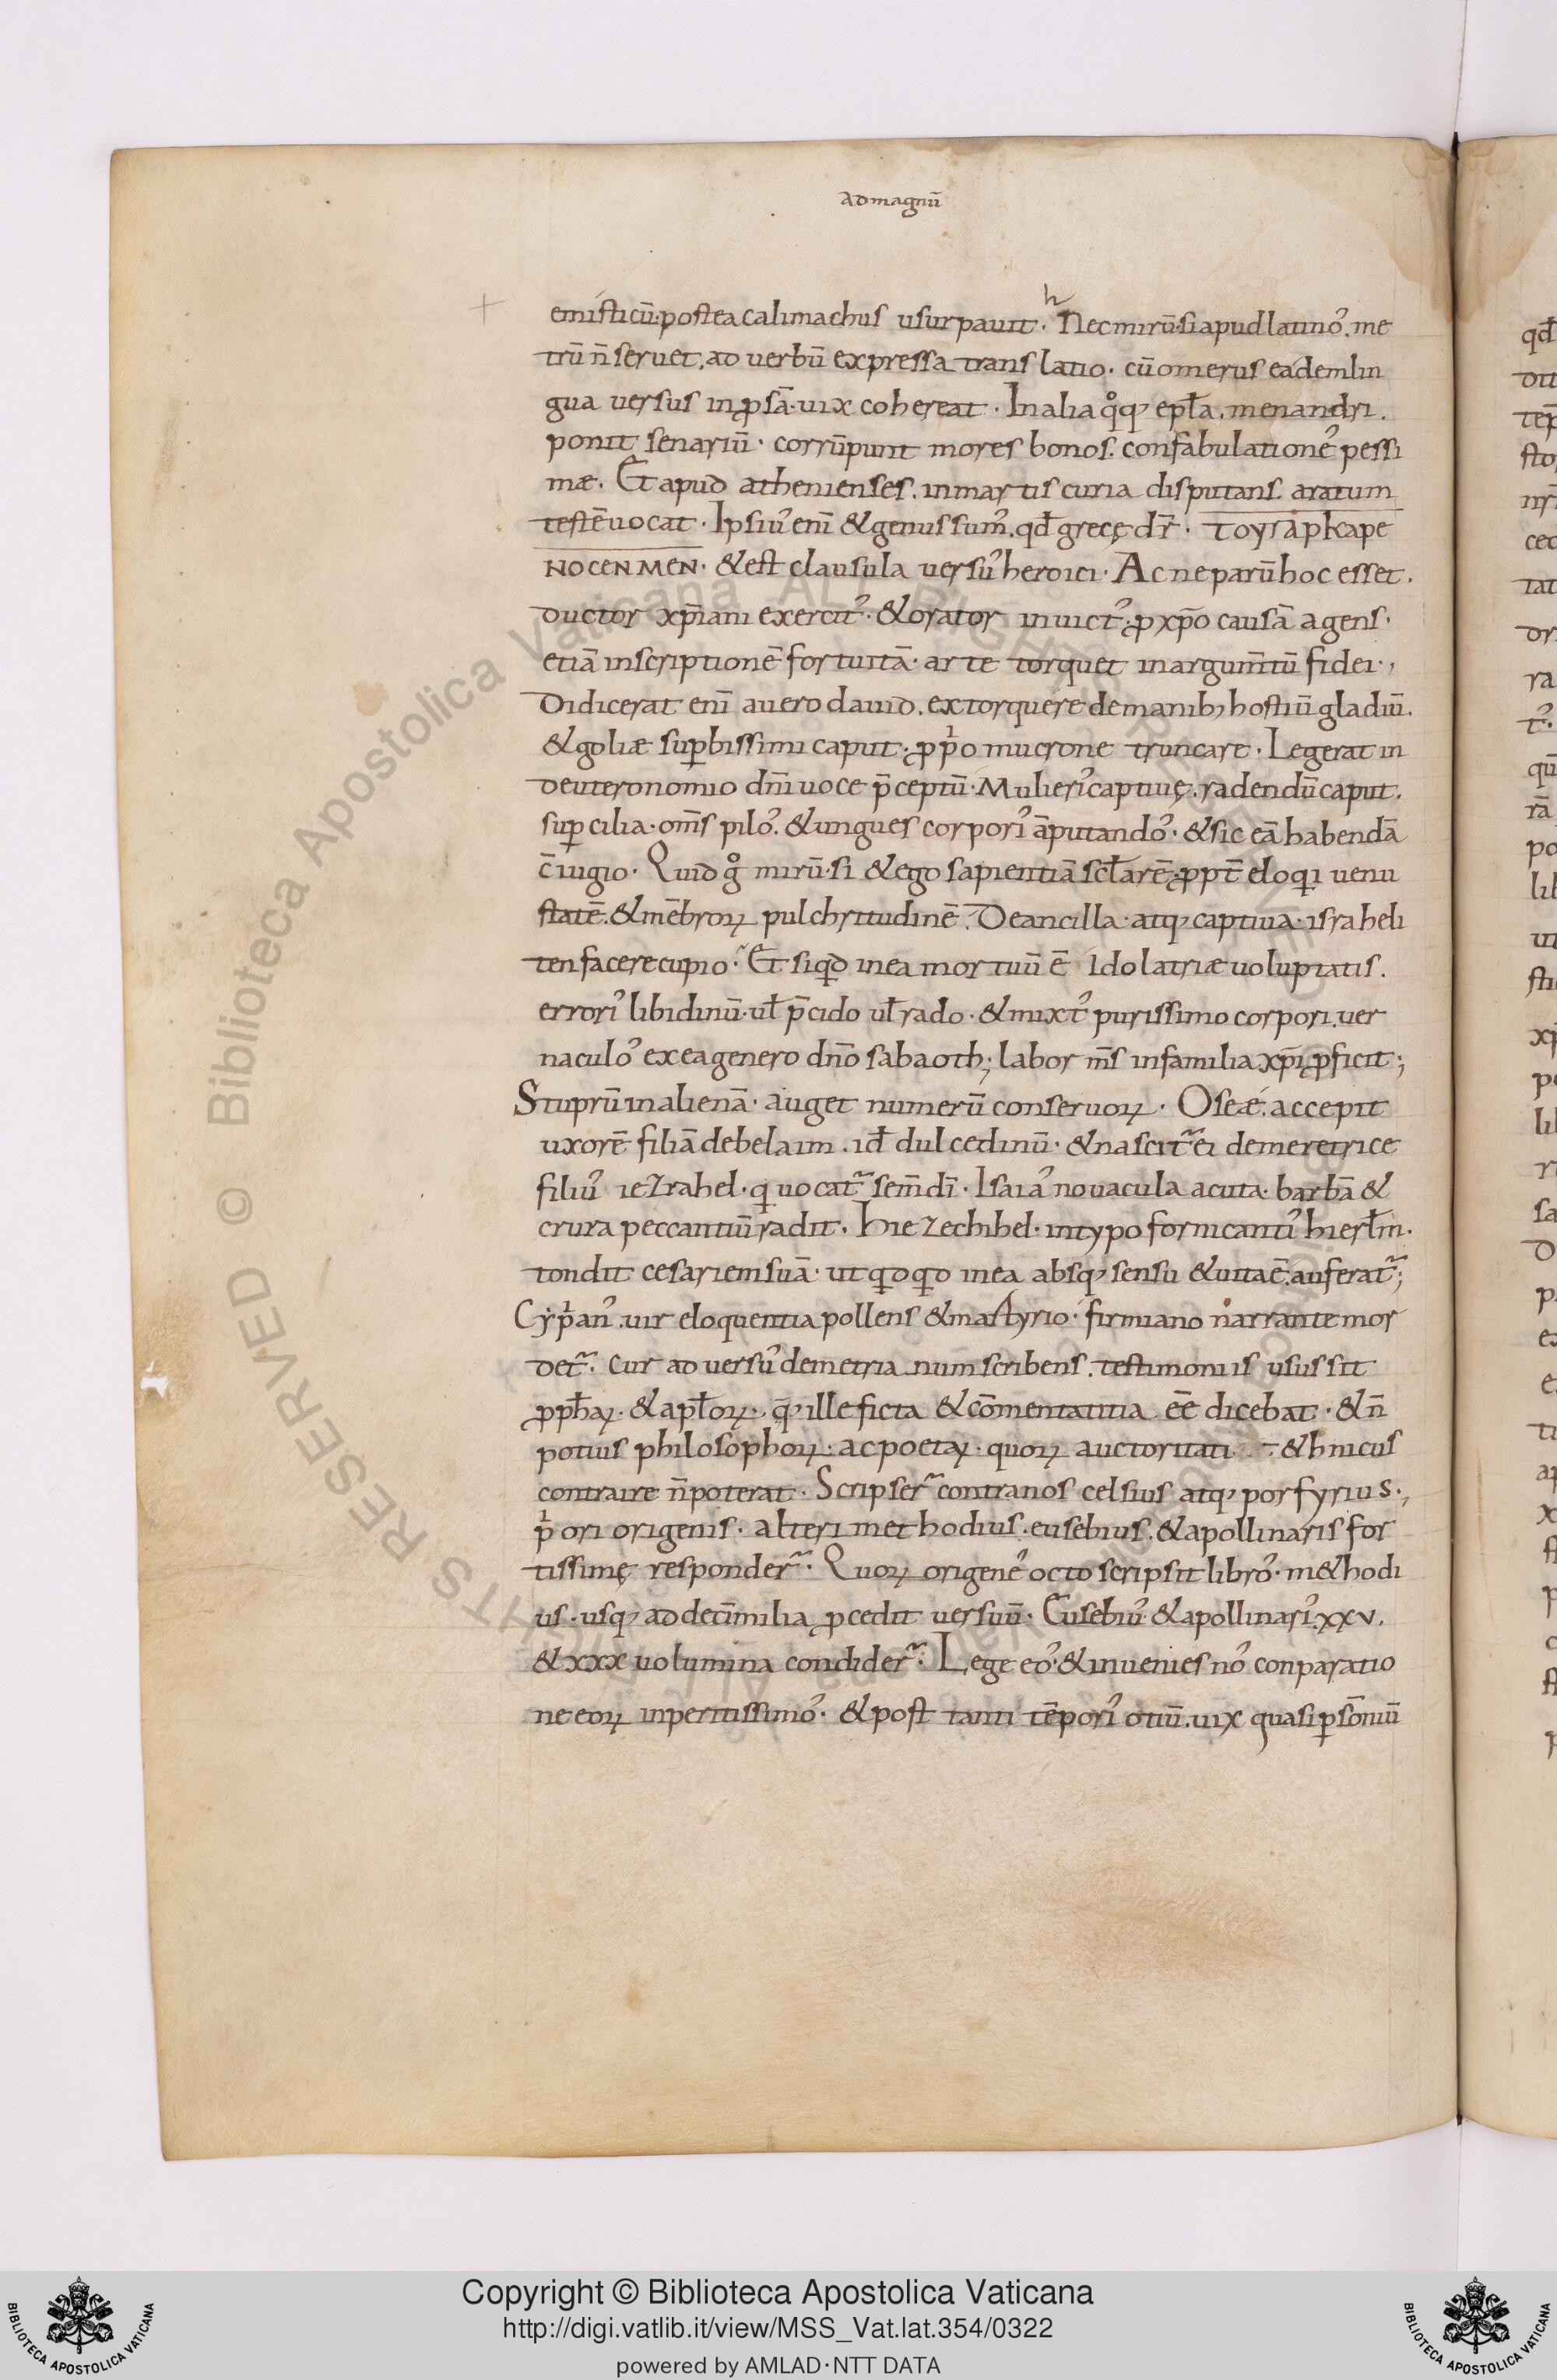 ad magnū
emisticū. postea calimachus usurpauit. Nec mirū. si apud latinoˀ. me
trū n̄ seruet. ad uerbū expressa translatio. cū omerus eadem lin
gua uersus in ꝓsā. uix cohereat. In alia qͦqꝫ epła. menandri.
ponit senariū. corrūpunt mores bonos. confabulationeˀ pessi
mæ. Et apud athenienses. in martis curia disputans. aratum
testē uocat. Ipsiuˀ enī & genus sumˀ. qđ grecę dr̄. Τογγαρκαρε
ΝΟCΕΝΜΕΝ. & est clausula uersuˀ heroici. Ac ne parū hoc esset.
ductor xp̄iani exercitˀ. & orator inuictˀ. ꝓ xp̄o causā agens.
etiā inscriptionē fortuitā. arte torquet in argum̄tū fidei.,
Didicerat enī a uero dauid. extorquere de manibꝫ hostiū gladiū.
& goliæ suꝑbissimi caput. ꝓpͥo mucrone truncare. Legerat in
deuteronomio dn̄i uoce p̄ceptū. Mulieriˀ captiuę. radendū caput.
suꝑcilia. om̄s piloˀ. & ungues corporiˀ āputandoˀ. & sic eā habendā
c̄iugio. Quid gͦ mirū. si & ego sapientiā scłarē. ꝓpt̄ eloqͥi uenu
statē. & mēbroꝝ pulchritudinē. De ancilla. atqꝫ captiua. israheli
ten facere cupio. Et siqͥd in ea mortuū ē idolatriæ uoluptatis.
erroriˀ libidinū. uł p̄cido uł rado. & mixtˀ purissimo corpori. uer
naculoˀ ex ea genero dn̄o sabaoth; labor m̄s in familia xp̄i ꝓficit;
Stuprū in alienā. auget numerū conseruoꝝ. Oseæ. accepit
uxorē filiā debelaim. id̄ dulcedinū. & nascit᷑ ei de meretrice
filiuˀ iezrahel. qͥ uocat᷑ sem̄ dī. Isaiaˀ nouacula acuta. barbā &
crura peccantiū radit. Hiezechihel. in typo fornicantiˀ hierłm.
tondit cesariem suā. ut qͥdqͥd in ea absqꝫ sensu & uita ē. auferat᷑;
Cypͥanˀ. uir eloquentia pollens & martyrio. firmiano narrante mor
det᷑. cur aduersuˀ demetrianum scribens. testimoniis usus sit
ꝓpħaꝝ. & apłoꝝ. q̄ꝫ ille ficta & cōmentatitia eē dicebat. & n̄
potius philosophoꝝ. ac poetaꝝ. quoꝝ auctoritati & hnicus
contraire n̄ poterat. Scripser᷑ contra nos celsius atqꝫ porfyrius.,
pͥori origenis. alteri methodius. eusebius. & apollinaris for
tissimę responder᷑. Quoꝝ origeneˀ octo scripsit libroˀ. m&hodi
us. usqꝫ ad decī milia ꝓcedit uersuū. Eusebiuˀ & apollinariˀ. xxv.
& xxx uolumina condider᷑. Lege eoˀ. & inuenies noˀ conparatio
ne eoꝝ inperitissimoˀ. & post tanti tēporiˀ otiū. uix quasi ꝑ sōniū
Copyright © Biblioteca Apostolica Vaticana
http://digi.vatlib.it/view/MSS_Vat.lat.354/0322
powered by AMLAD·NTT DATA
BIBLIOTECA APOSTOLICA VATICANA
BIBLIOTECA APOSTOLICA VATICANA